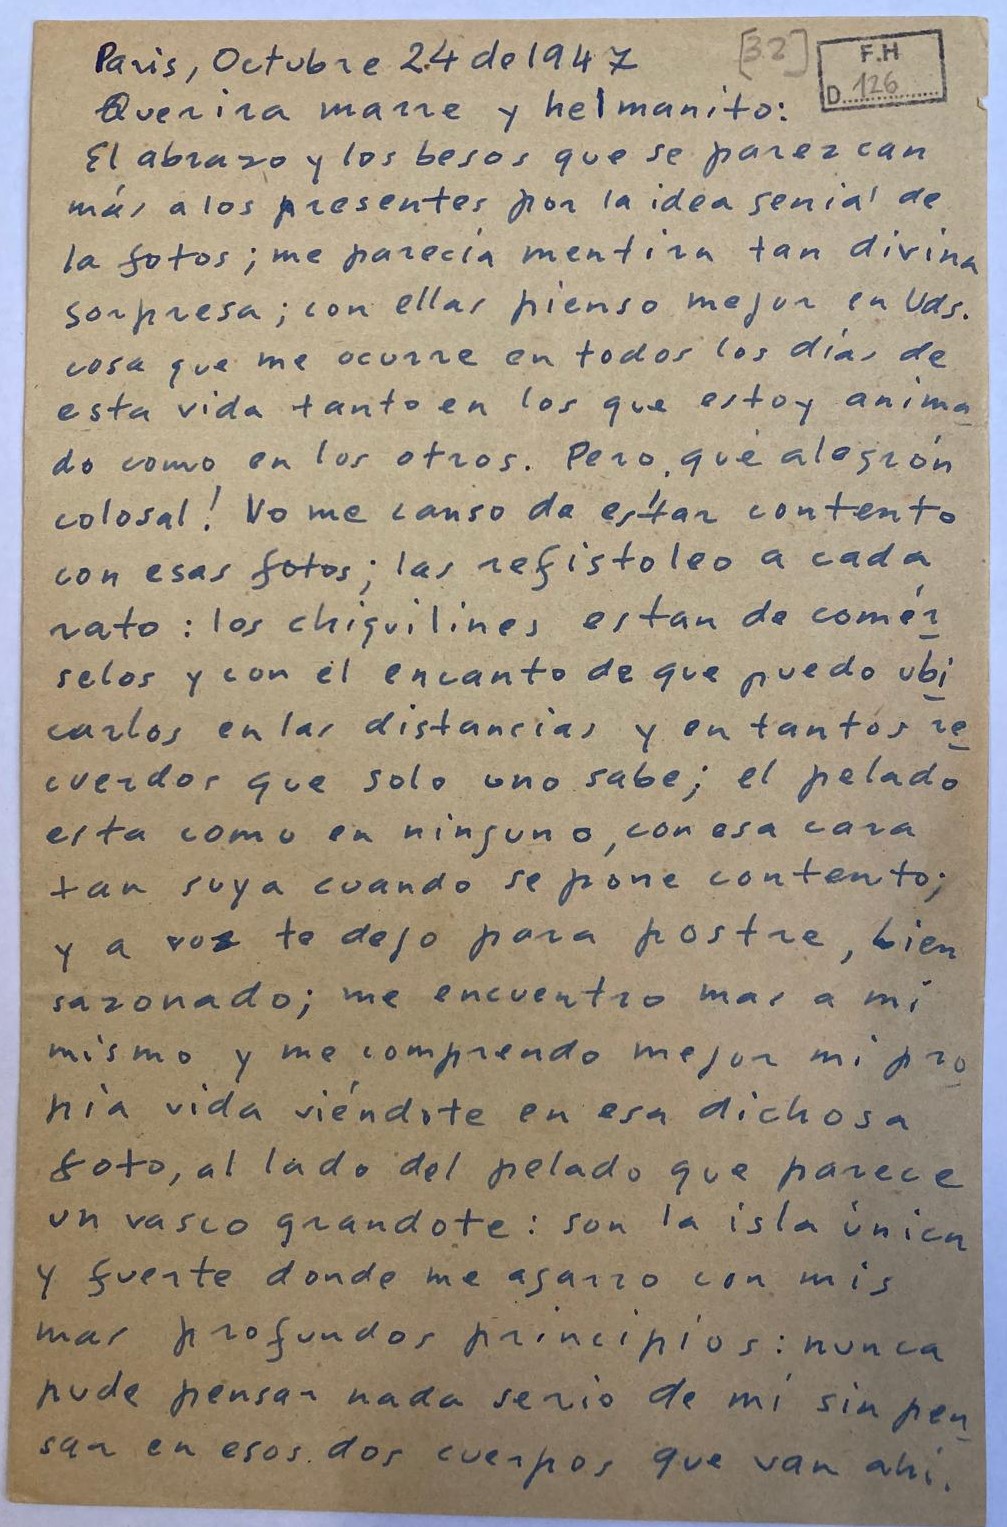 Paris, Octubre 24 de 1947
[32]
F.H
D...126......
Querira marre y helmanito:
El abrazo y los besos que se parezcan
más a los presentes por la idea genial de
la fotos; me parecía mentira tan divina
sorpresa; con ellas pienso mejor en Uds.
cosa que me ocurre en todos los días de
esta vida tanto en los que estoy anima
do como en los otros. Pero, qué alegrón
colosal! No me canso de estar contento
con esas fotos; las refistoleo a cada
rato: los chiquilines estan de comér
selos y con el encanto de que puedo ubi
carlos en las distancias y en tantos re
cuerdos que solo uno sabe; el pelado
esta como en ninguno, con esa cara
tan suya cuando se pone contento;
y a vos te dejo para postre, bien
sazonado; me encuentro mas a mí
mismo y me comprendo mejor mi pro
pia vida viéndote en esa dichosa
foto, al lado del pelado que parece
un vasco grandote: son la isla única
y fuerte donde me agarro con mis
mas profundos principios: nunca
pude pensar nada serio de mí sin pen
sar en esos dos cuerpos que van ahí.